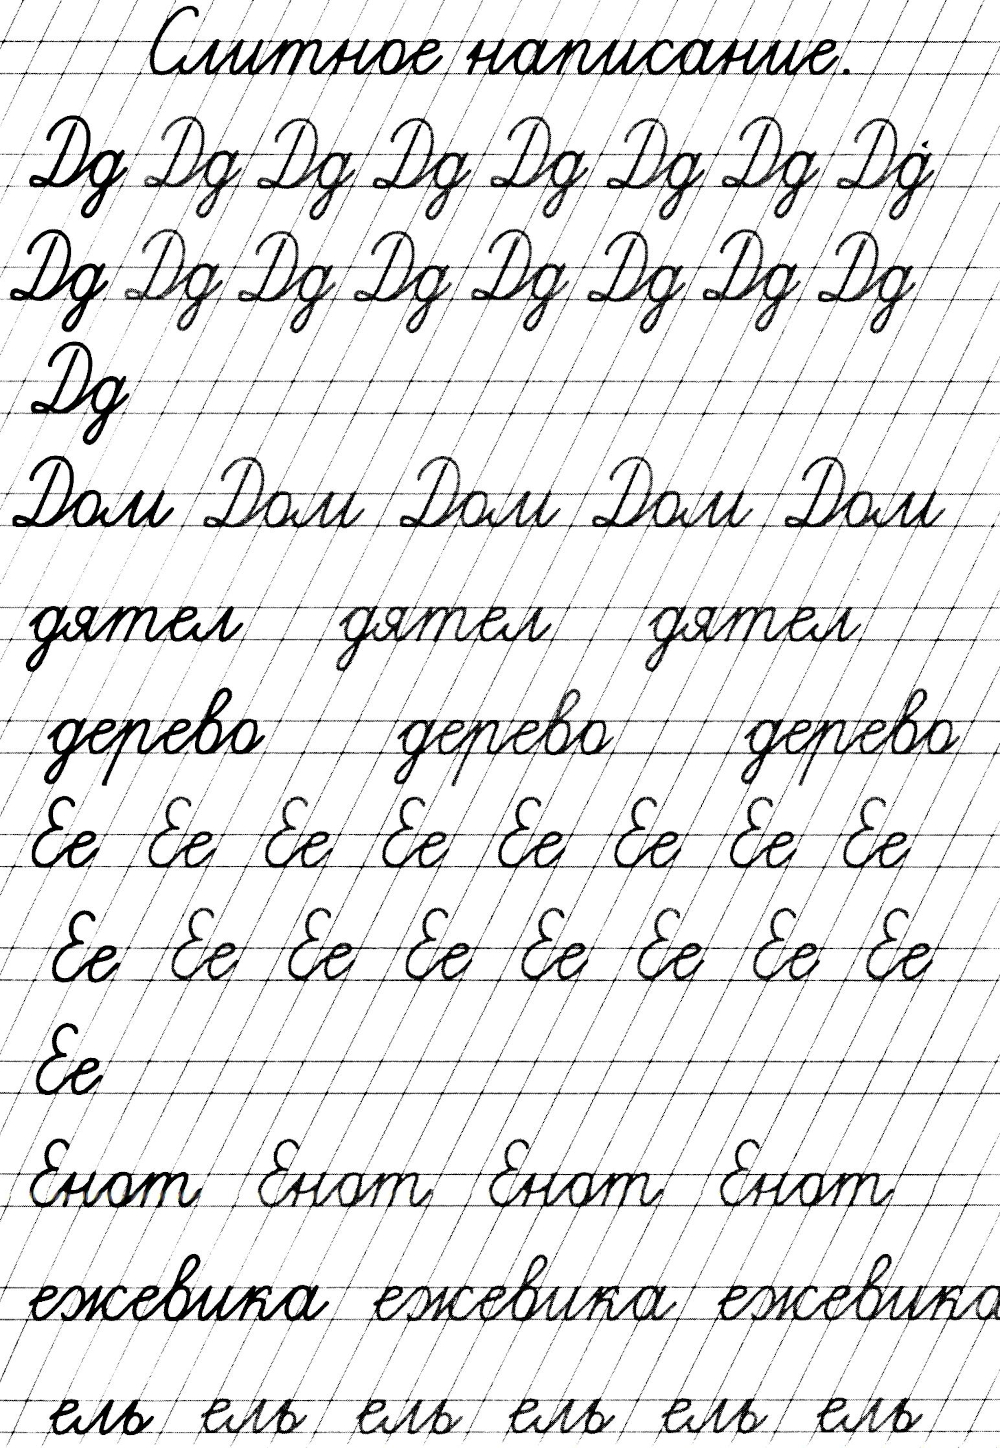 Слитное написание.
Дд Дд Дд Дд Дд Дд Дд Дд
Дд Дд Дд Дд Дд Дд Дд Дд
Дд
Дом Дом Дом Дом Дом
дятел дятел дятел
дерево дерево дерево
Ее Ее Ее Ее Ее Ее Ее Ее
Ее Ее Ее Ее Ее Ее Ее Ее
Ее
Енот Енот Енот Енот
ежевика ежевика ежевика
ель ель ель ель ель ель